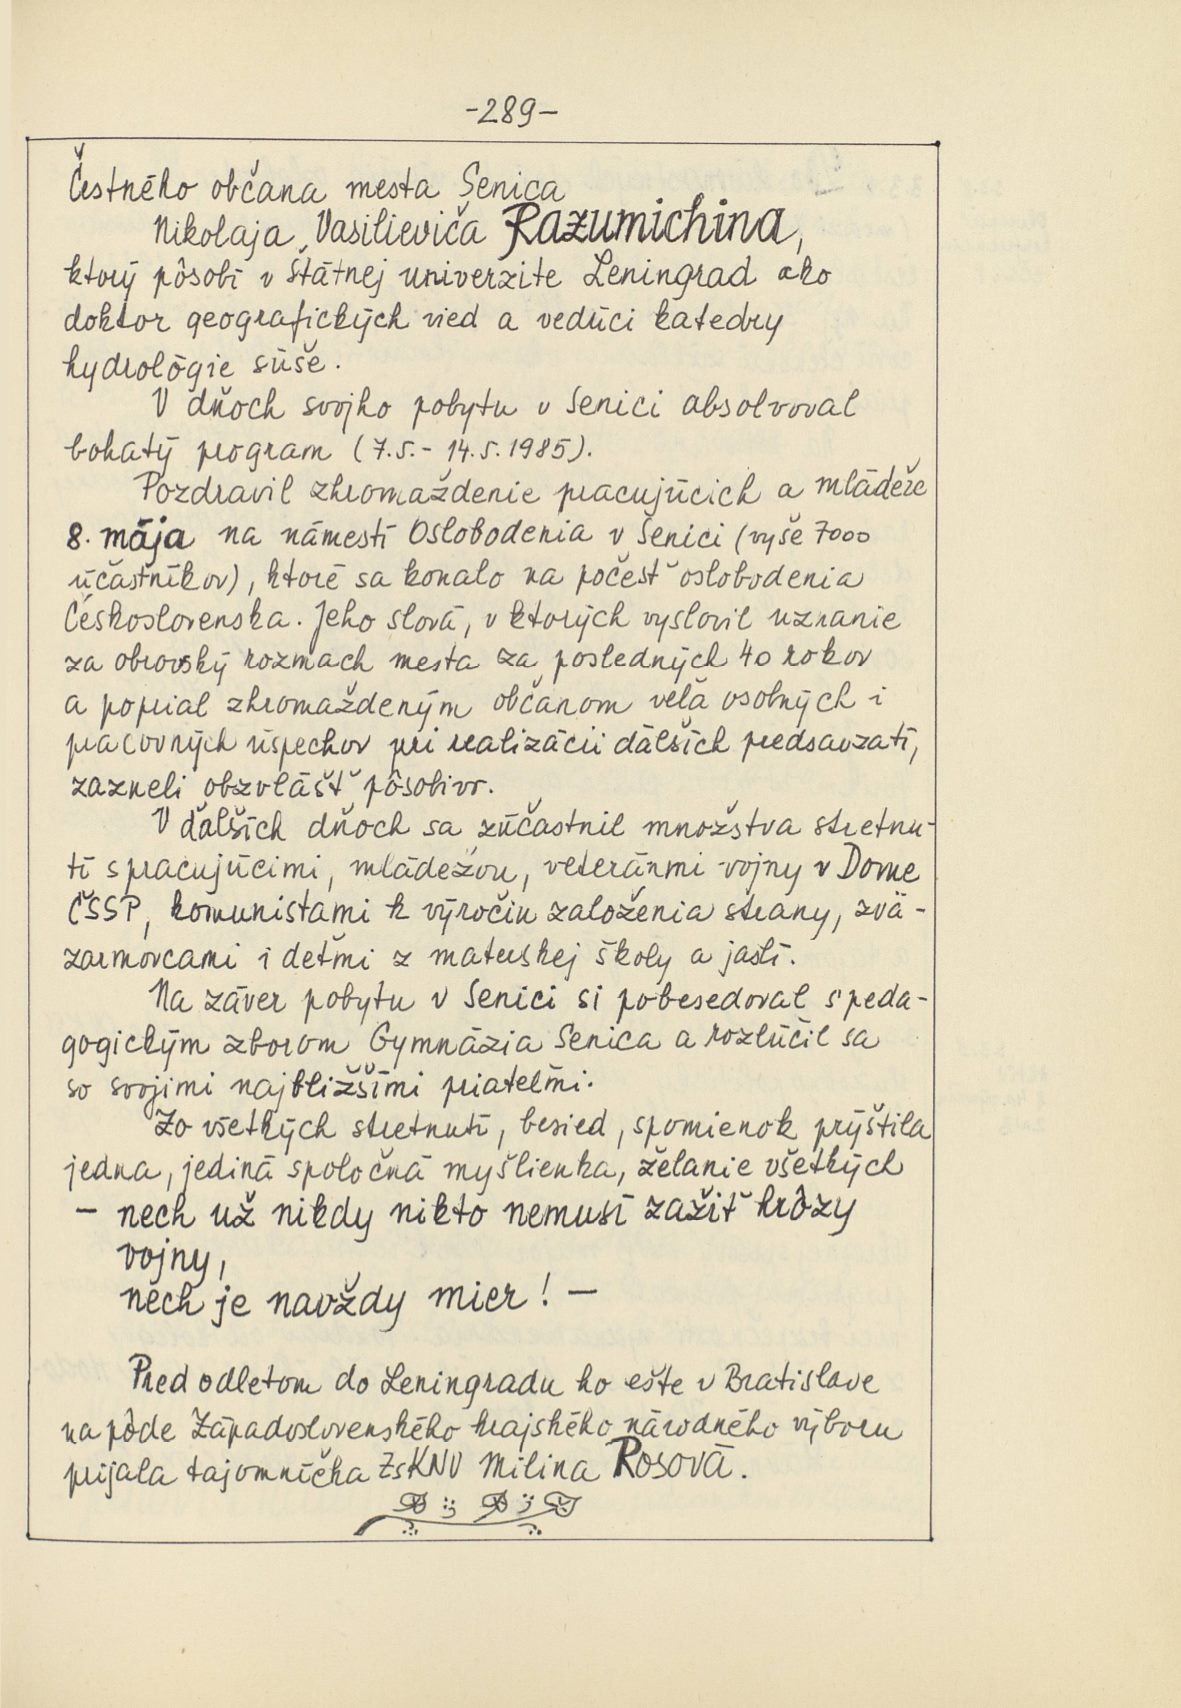 -289-
Čestného občana mesta Senica
Nikolaja Vasilieviča Razumichina,
ktorý pôsobí v Štátnej univerzite Leningrad ako
doktor geografických vied a vedúci katedry
hydrológie súše.
V dňoch svojho pobytu v Senici absolvoval
bohatý program (7.5.- 14.5.1985).
Pozdravil zhromaždenie pracujúcich a mládeže
8. mája na námestí Oslobodenia v Senici (vyše 7000
účastníkov), ktoré sa konalo na počesť oslobodenia
Československa. Jeho slová, v ktorých vyslovil uznanie
za obrovský rozmach mesta za posledných 40 rokov
a poprial zhromaždeným občanom veľa osobných i
pracovných úspechov pri realizácii ďalších predsavzatí,
zazneli obzvlášť pôsobivo.
V ďalších dňoch sa zúčastnil množstva stretnu-
tí s pracujúcimi, mládežou, veteránmi vojny v Dome
ČSSP, komunistami k výročiu založenia strany, zvä-
zarmovcami i deťmi z materskej školy a jaslí.
Na záver pobytu v Senici si pobesedoval s peda-
gogickým zborom Gymnázia Senica a rozlúčil sa
so svojimi najbližšími priateľmi.
Zo všetkých stretnutí, besied, spomienok prýštila
jedna, jediná spoločná myšlienka, želanie všetkých
- nech už nikdy nikto nemusí zažiť hrôzy
vojny,
nech je navždy mier! -
Pred odletom do Leningradu ho ešte v Bratislave
na pôde Západoslovenského krajského národného výboru
prijala tajomníčka ZsKNV Milina Rosová.